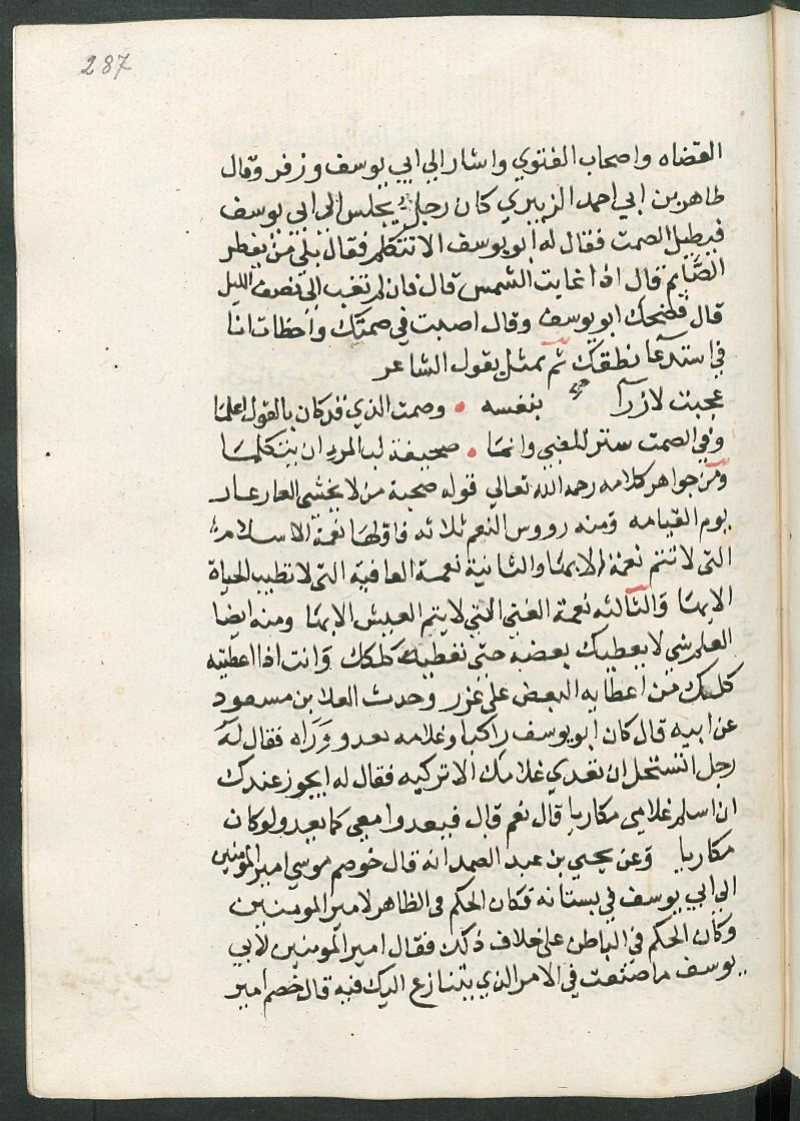 287
القضاه واصحاب الفتوي واشار الي ابي يوسف وزفر وقال
طاهر بن ابي احمد الزبيري كان رجل يجلس الي ابي يوسف
فيطيل الصمت فقال له ابو يوسف الا تتكلم فقال بلي متي يفطر
الصَّايم قال اذا غابت الشمس قال فان لم تغب الي نصف الليل
قال فضحك ابو يوسف وقال اصبت في صمتك واخطات انا
في استدعا نطقك ثم تمثل بقول الشاعر
عجبت لازرآ بنفسه وصمت الذي قد كان بالقول اعلما
وفي الصمت ستر للغبي وانما صحيفة لب المرء ان يتكلما
ومن جواهر كلامه رحمه الله تعالي قوله صحبة من لا يخشي العار عار
يوم القيامه ومنه رووس النعم ثلاثه فاولها نعمة الاسلام
التي لا تتم نعمة الا بها والثانية نعمة العافيه التي لا تطيب الحياة
الا بها والثالثه نعمة الغني التي لا يتم العيش الا بها ومنه ايضا
العلم شي لا يعطيك بعضه حتي تعطيه كلك وانت اذا اعطيته
كلك من اعطايه البعض علي غرر وحدث العلا بن مسعود
عن ابيه قال كان ابو يوسف راكبا وغلامه يعدو وَرَاه فقال له
رجل اتستحل ان تعدي غلامك الا تركبه فقال له ايجوز عندك
ان اسلم غلامي مكاريا قال نعم قال فيعدوا معي كما يعدو لو كان
مكاريا وعن يحيي بن عبد الصمد انه قال خوصم موسي امير المومنين
الي ابي يوسف في بستانه فكان الحكم في الظاهر لامير المومنين
وكان الحكم في الباطن علي خلاف ذلك فقال امير المومنين لابي
يوسف ما صنعت في الامر الذي يتنازع اليك فيه قال خصم امير